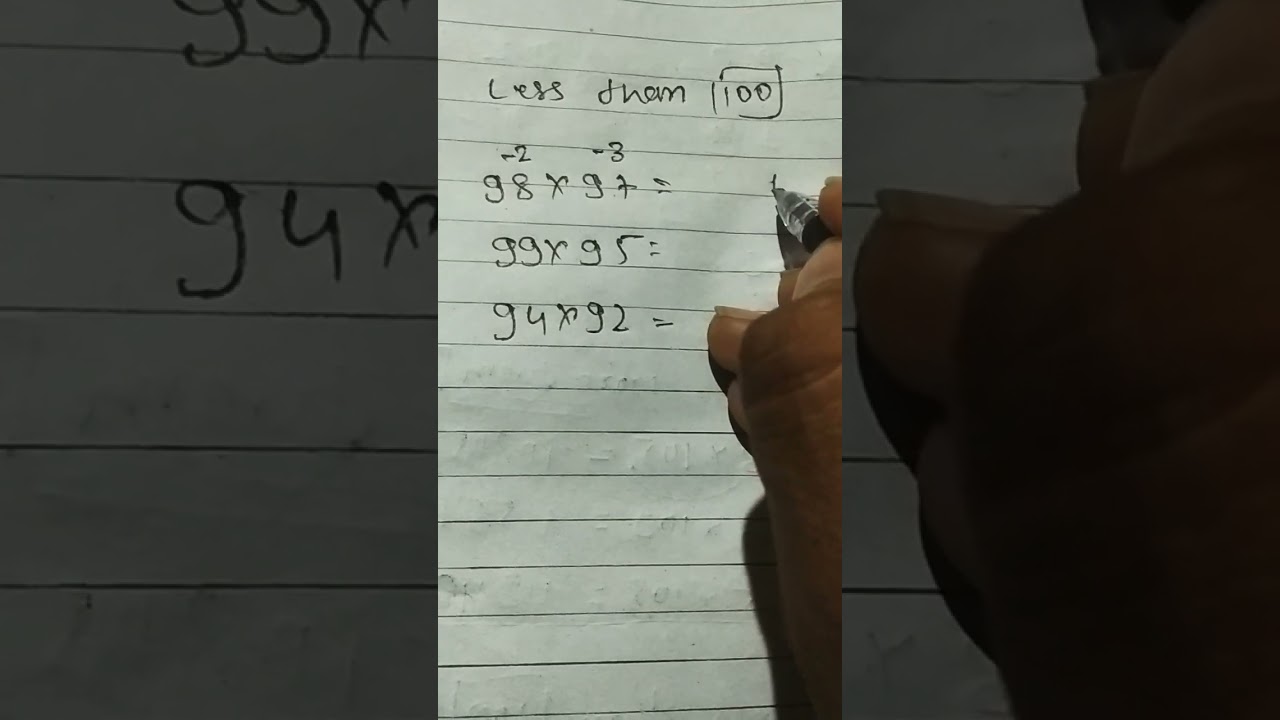 Less than 100
-2 -3
98x97=
99x95=
94x92=